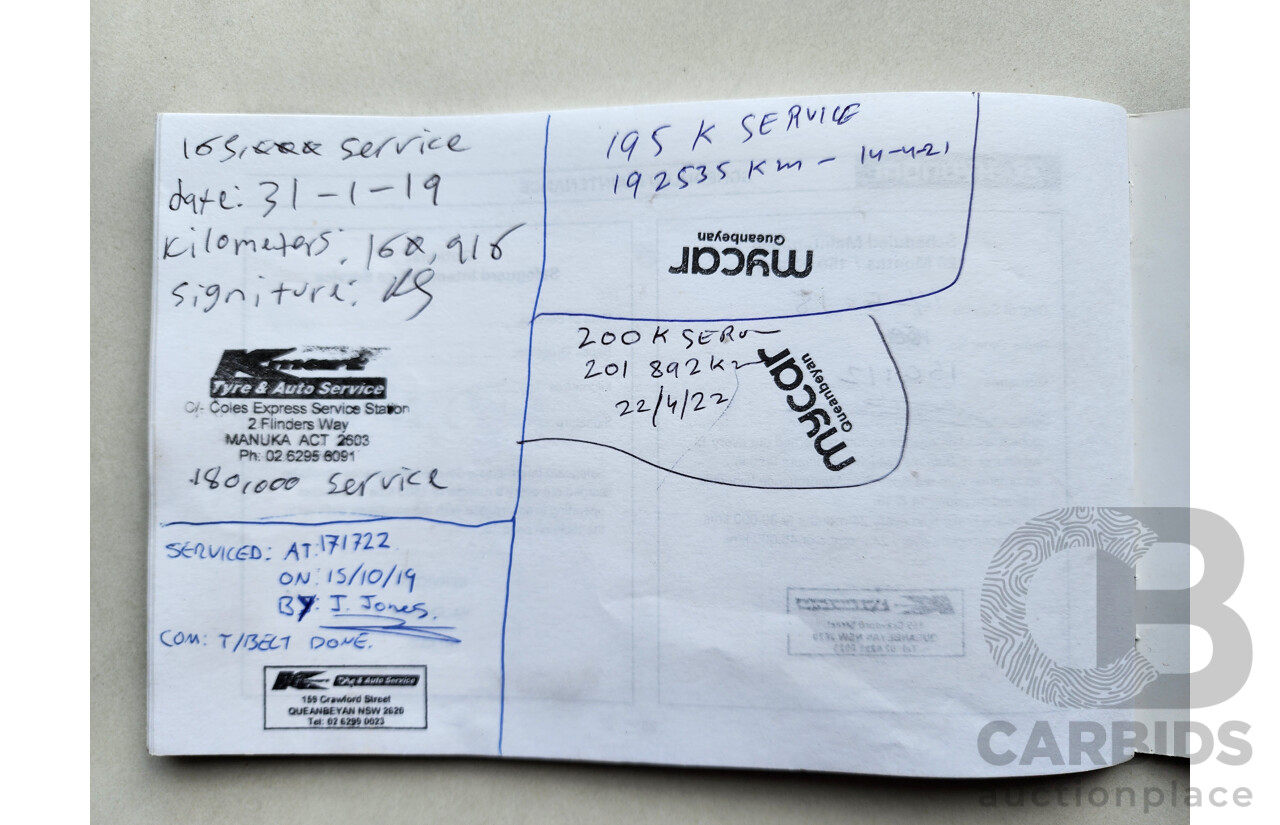 165,000 service
date: 31-1-19
kilometers: 160,916
signiture: KS
Kmart
Tyre & Auto Service
C/- Coles Express Service Station
2 Flinders Way
MANUKA ACT 2603
Ph: 02 6295 6091
180,000 service
SERVICED: AT: 171722
ON: 15/10/19
BY: J. Jones.
COM: T/BELT DONE.
Kmart Tyre & Auto Service
159 Crawford Street
QUEANBEYAN NSW 2620
Tel: 02 6299 0023
195 K SERVICE
192535 Km - 14-4-21
mycar
Queanbeyan
200 K SERV
201 892 Km
22/4/22
mycar
Queanbeyan
CB
CARBIDS
auctionplace